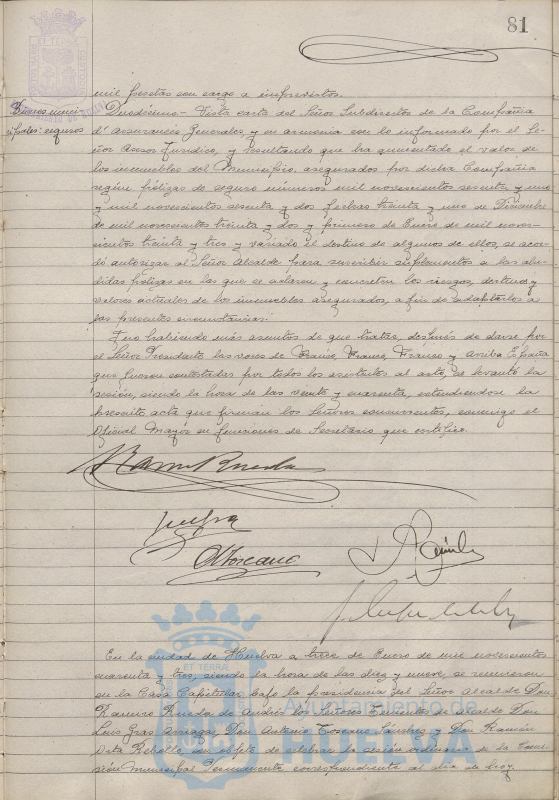 81
mil pesetas con cargo a imprevistos.
Bienes muni-
cipales: seguros
Duodécimo.- Vista carta del Señor Subdirector de la Compañia
d'Assurances Generales, y en armonia con lo informado por el Se-
ñor Asesor Juridico, y resultando que ha aumentado el valor de
los inmuebles del Municipio, asegurados por dicha Compañia
según pólizas de seguro números mil novecientos sesenta y uno
y mil novecientos sesenta y dos fechas treinta y uno de Diciembre
de mil novecientos treinta y dos y primero de Enero de mil nove-
cientos treinta y tres y variado el destino de algunos de ellos, se acor-
dó autorizar al Señor Alcalde para suscribir suplementos a las alu-
didas pólizas en las que se aclaren y concreten los riesgos, destinos y
valores actuales de los inmuebles asegurados, a fin de adaptarlos a
las presentes circunstancias.
Y no habiendo más asuntos de que tratar, después de darse por
el Señor Presidente las voces de Franco, Franco, Franco y Arriba España
que fueron contestadas por todos los asistentes al acto, se levantó la
sesión, siendo la hora de las veinte y cuarenta, extendiéndose la
presente acta que firman los Señores concurrentes, conmigo el
Oficial Mayor en funciones de Secretario que certifico.
Ramiro Rueda
A Toscano
En la ciudad de Huelva a trece de Enero de mil novecientos
cuarenta y tres, siendo la hora de las diez y nueve, se reunieron
en la Casa Capitular bajo la presidencia del Señor Alcalde Don
Ramiro Rueda de Andrés los Señores Tenientes de Alcalde Don
Luis Gras Arriaga, Don Antonio Toscano Sánchez y Don Ramón
Rebollo, con objeto de celebrar la sesión ordinaria de la Comi-
sión Municipal Permanente correspondiente al dia de hoy.
ET TERRA
Ayuntamiento de
HUELVA